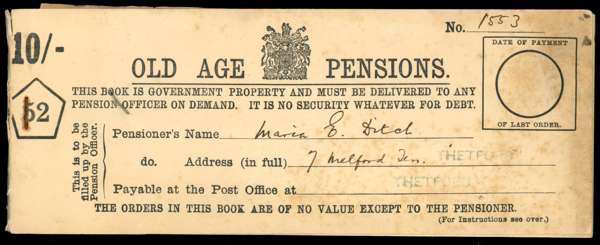 No. 1553
10/-
OLD AGE PENSIONS.
DATE OF PAYMENT
OF LAST ORDER.
THIS BOOK IS GOVERNMENT PROPERTY AND MUST BE DELIVERED TO ANY
PENSION OFFICER ON DEMAND. IT IS NO SECURITY WHATEVER FOR DEBT.
52
This is to be
filled up by the
Pension Officer.
Pensioner's Name Maria E. Ditch
do. Address (in full) 7 Melford Ter.
Payable at the Post Office at
THE ORDERS IN THIS BOOK ARE OF NO VALUE EXCEPT TO THE PENSIONER.
(For Instructions see over.)